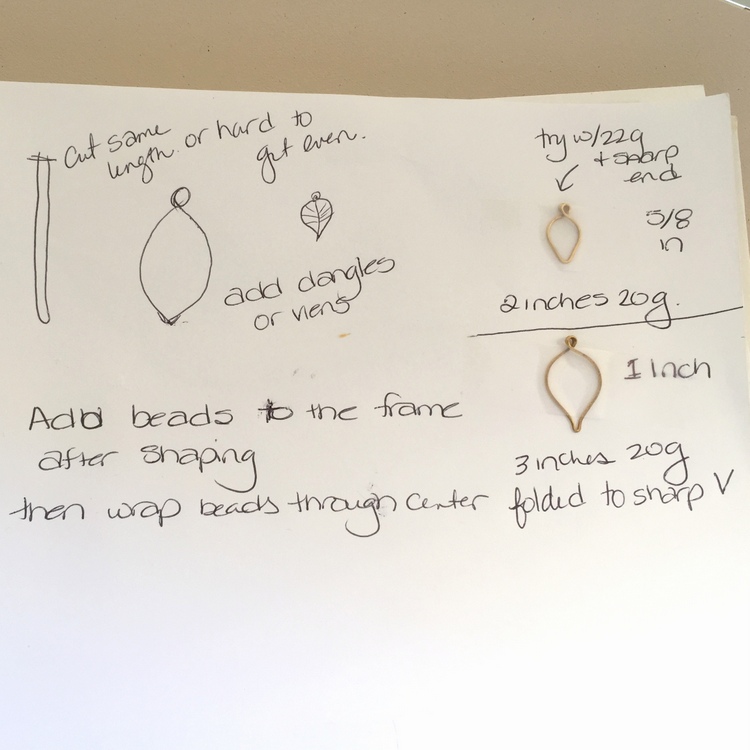 Cut same
length. or hard to
get even.
add dangles
or viens
try w/22g
+ sharp
end
5/8
in
2 inches 20g.
1 Inch
3 inches 20g
folded to sharp V
Add beads to the frame
after shaping
then wrap beads through center